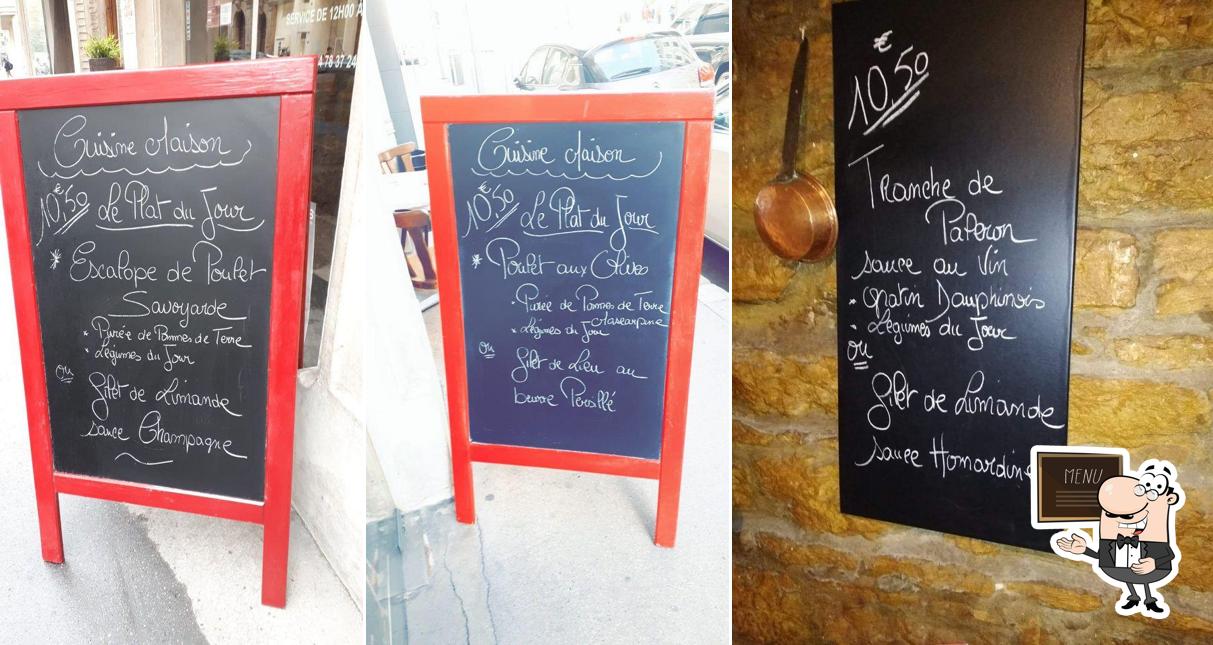 SERVICE DE 12H00 À
4 78 37 24
Cuisine Maison
10,50 € Le Plat du Jour
* Escalope de Poulet
Savoyarde
* Purée de Pommes de Terre
* Légumes du Jour
ou
Filet de Limande
sauce Champagne
Cuisine Maison
10,50 € Le Plat du Jour
* Poulet aux Olives
* Purée de Pommes de Terre
Mascarpone
* Légumes du Jour
ou
Filet de Lieu au
beurre Persillé
€
10,50
Tranche de
Paleron
sauce au Vin
* Gratin Dauphinois
* Légumes du Jour
ou
Filet de Limande
sauce Homardine
MENU